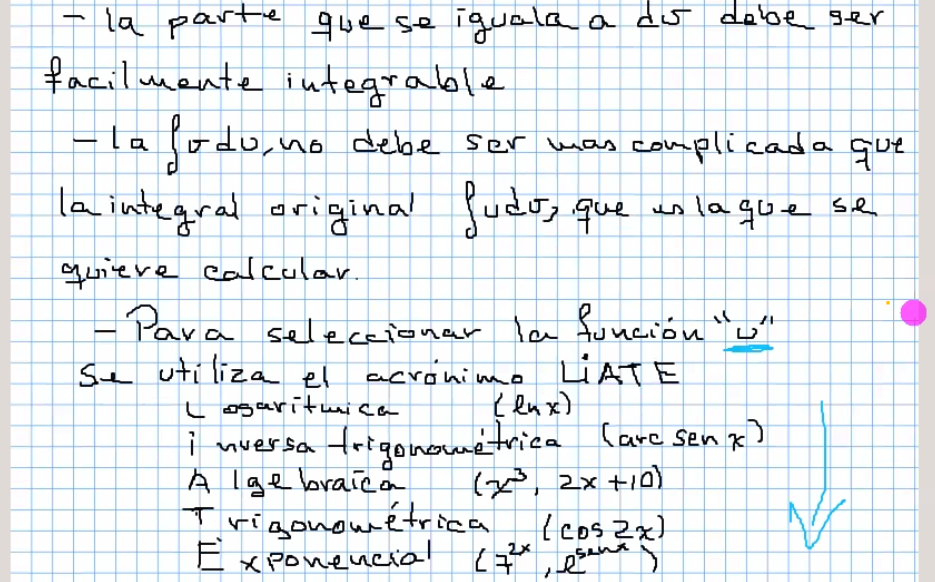 - la parte que se iguala a dv debe ser
facilmente integrable
- la ∫vdu, no debe ser mas complicada que
la integral original ∫udv, que es la que se
quiere calcular.
- Para seleccionar la función "u"
se utiliza el acrónimo LiATE
Logaritmica (ln x)
inversa trigonométrica (arc sen x)
Algebraíca (x³, 2x+10)
Trigonométrica (cos 2x)
Exponencial (7²ˣ, e^senx)